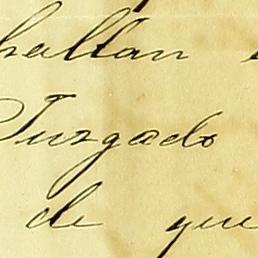 hallan
Juzgado
de que